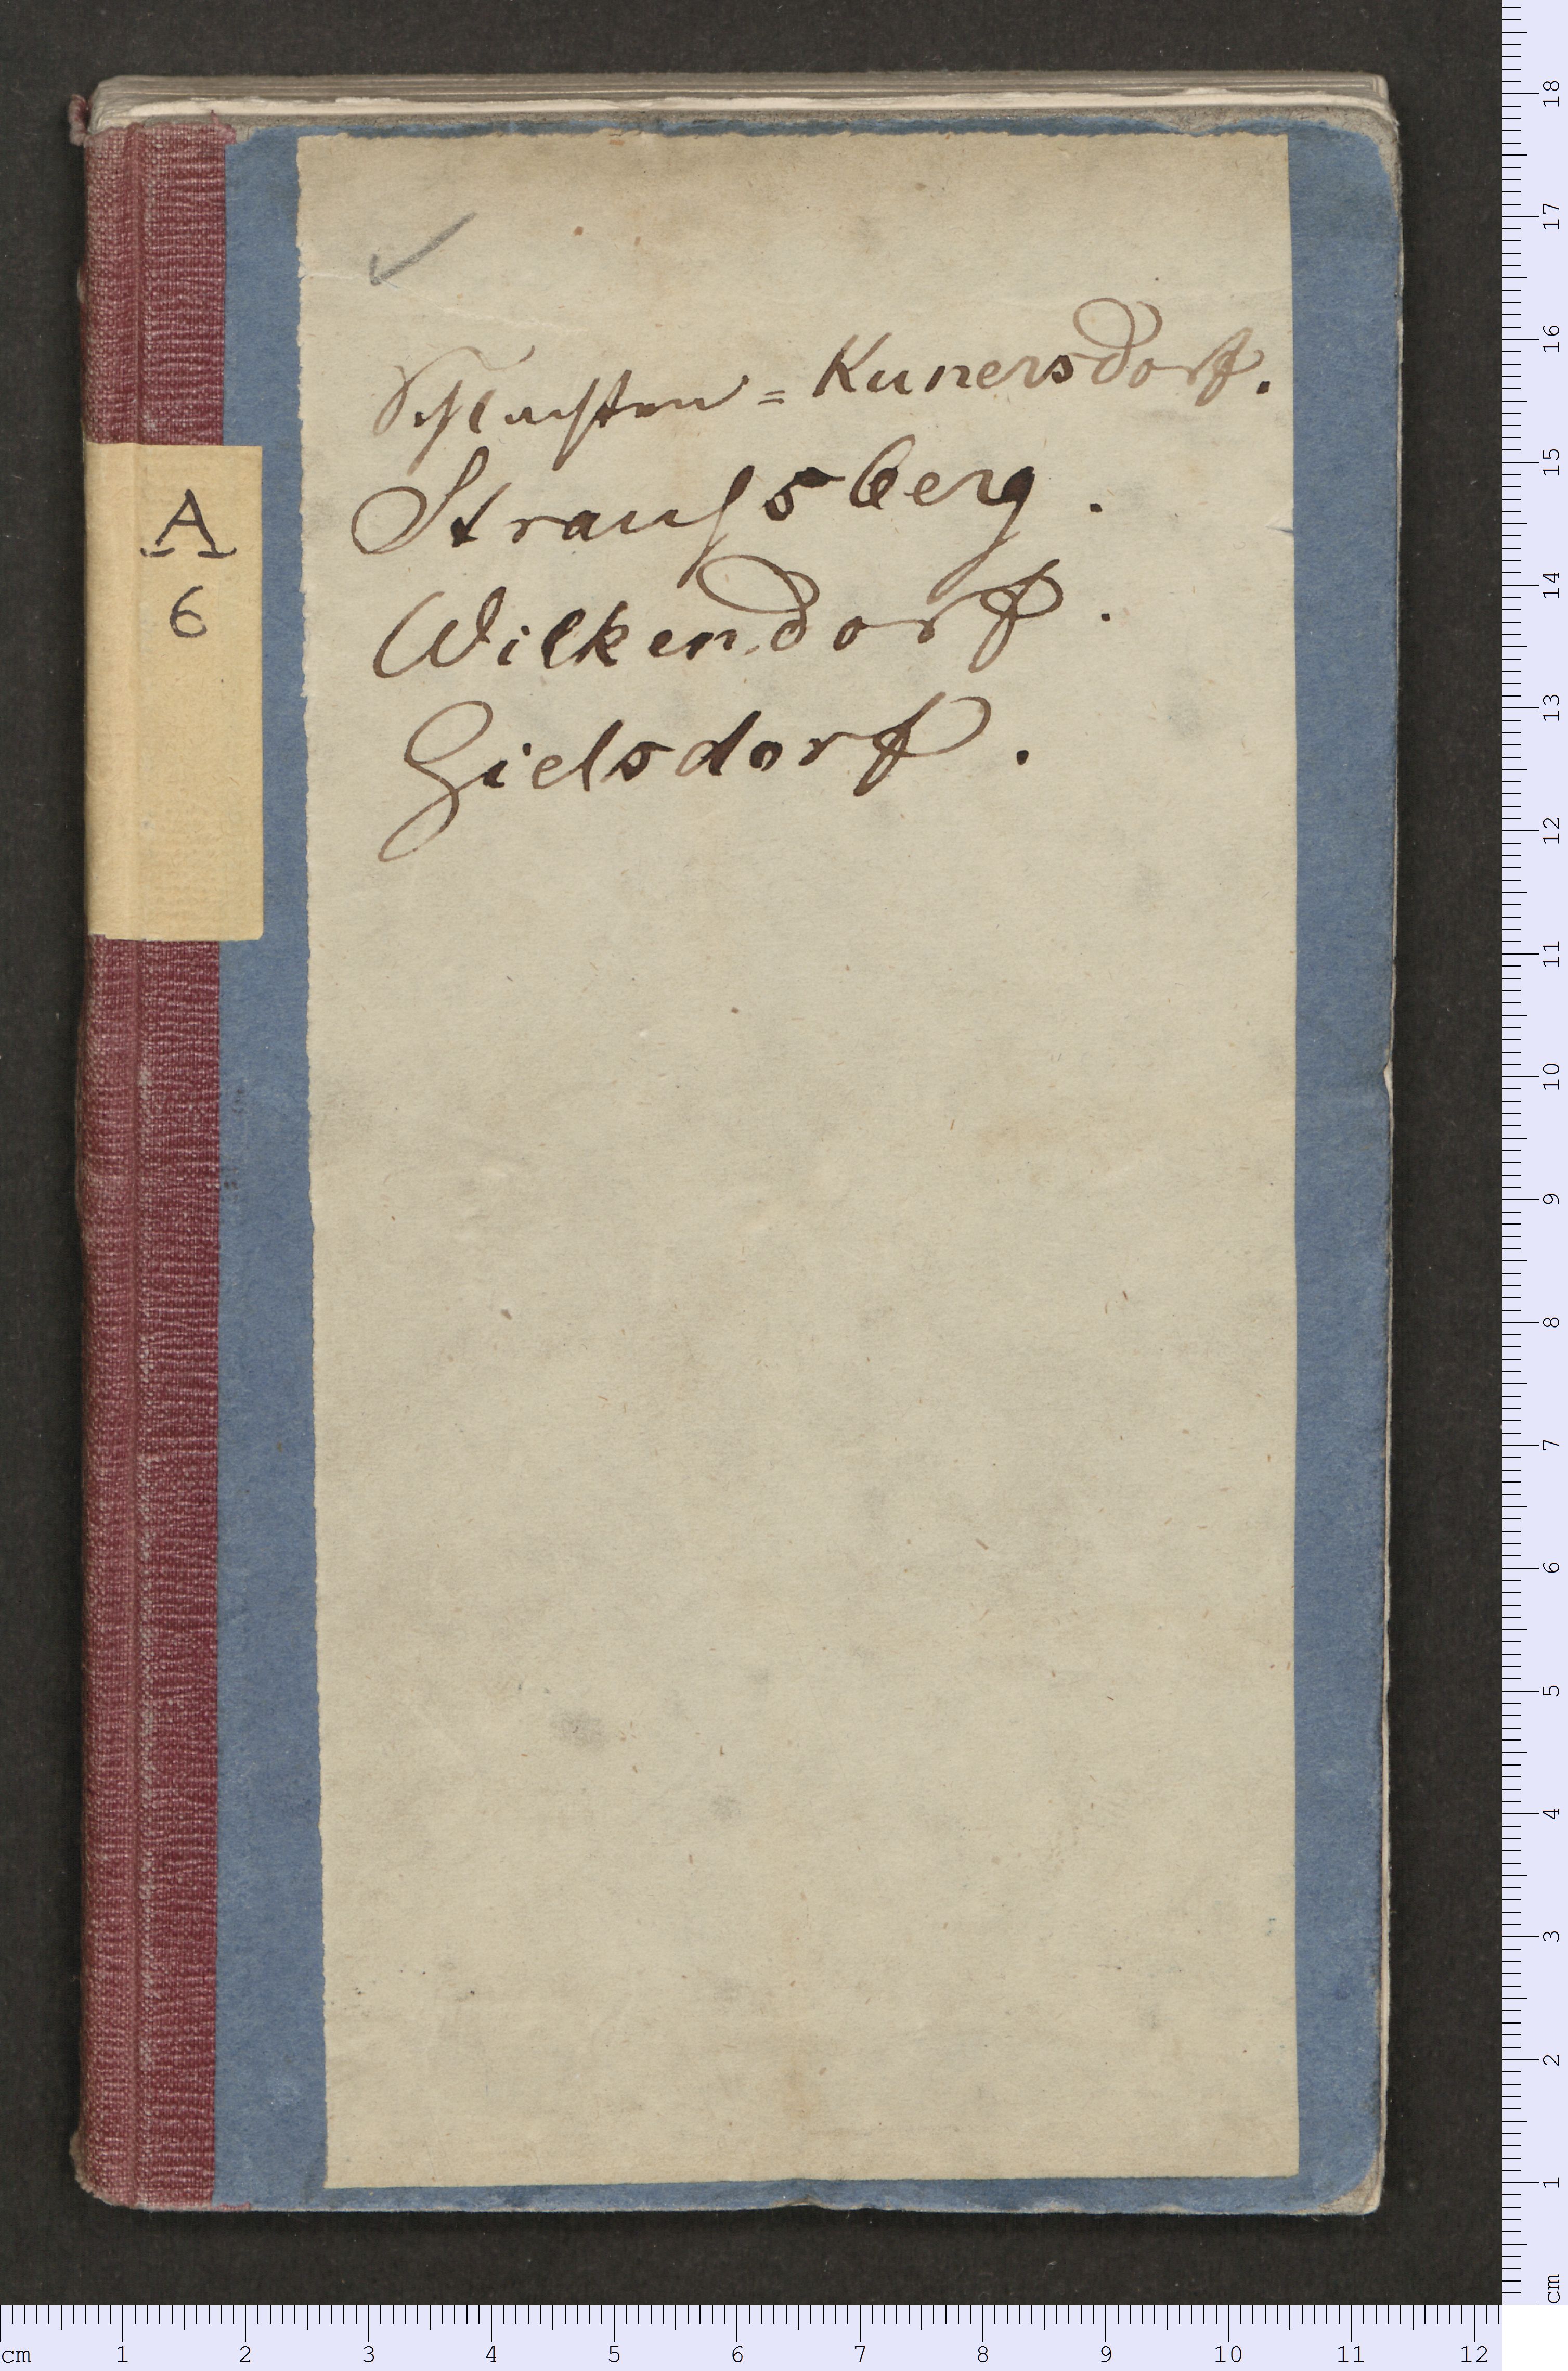 A
6
Schlachten=Kunersdorf.
Straußsberg.
Wilkendorf.
Gielsdorf.
18
17
16
15
14
13
12
11
10
9
8
7
6
5
4
3
2
1
cm
cm 1 2 3 4 5 6 7 8 9 10 11 12